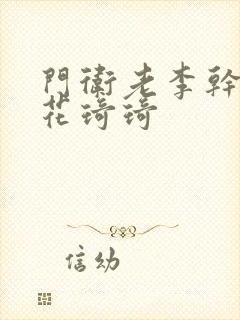 門衛老李幹
花琦琦
信幼